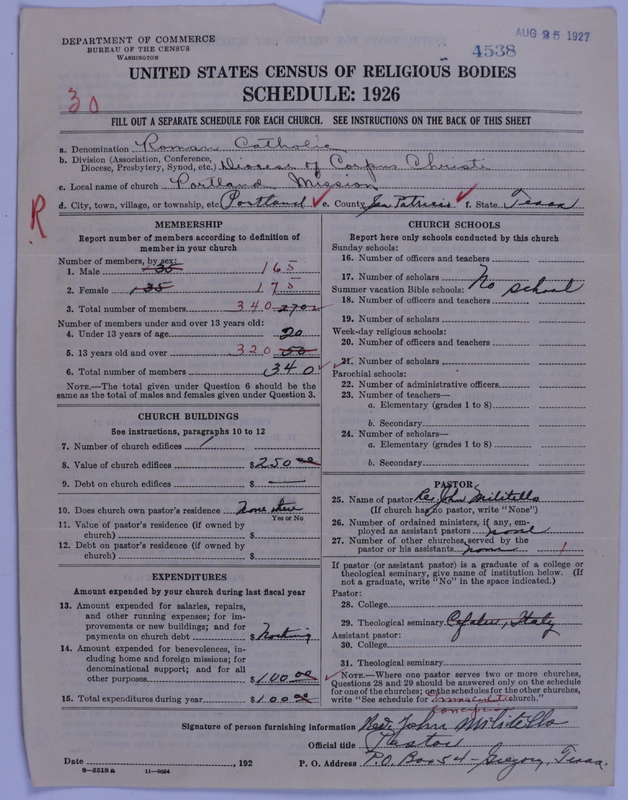 DEPARTMENT OF COMMERCE
BUREAU OF THE CENSUS
WASHINGTON
4538
AUG 25 1927
UNITED STATES CENSUS OF RELIGIOUS BODIES
SCHEDULE: 1926
30
FILL OUT A SEPARATE SCHEDULE FOR EACH CHURCH. SEE INSTRUCTIONS ON THE BACK OF THIS SHEET
a. Denomination Roman Catholic
b. Division (Association, Conference,
Diocese, Presbytery, Synod, etc.) Diocese of Corpus Christi
c. Local name of church Portland Mission
R
d. City, town, village, or township, etc. Portland e. County San Patricio f. State Texas
MEMBERSHIP
Report number of members according to definition of
member in your church
Number of members, by sex:
1. Male 35 165
2. Female 135 175
3. Total number of members 340 270
Number of members under and over 13 years old:
4. Under 13 years of age 20
5. 13 years old and over 320 50
6. Total number of members 340
NOTE.—The total given under Question 6 should be the
same as the total of males and females given under Question 3.
CHURCH BUILDINGS
See instructions, paragraphs 10 to 12
7. Number of church edifices 1
8. Value of church edifices $ 250 00
9. Debt on church edifices $ —
10. Does church own pastor's residence None
Yes or No
11. Value of pastor's residence (if owned by
church) $
12. Debt on pastor's residence (if owned by
church) $
EXPENDITURES
Amount expended by your church during last fiscal year
13. Amount expended for salaries, repairs,
and other running expenses; for im-
provements or new buildings; and for
payments on church debt $ Nothing
14. Amount expended for benevolences, in-
cluding home and foreign missions; for
denominational support; and for all
other purposes $ 100 00
15. Total expenditures during year $ 100 00
CHURCH SCHOOLS
Report here only schools conducted by this church
Sunday schools:
16. Number of officers and teachers
17. Number of scholars
Summer vacation Bible schools: No school
18. Number of officers and teachers
19. Number of scholars
Week-day religious schools:
20. Number of officers and teachers
21. Number of scholars
Parochial schools:
22. Number of administrative officers
23. Number of teachers—
a. Elementary (grades 1 to 8)
b. Secondary
24. Number of scholars—
a. Elementary (grades 1 to 8)
b. Secondary
PASTOR
25. Name of pastor Rev. John Militello
(If church has no pastor, write "None")
26. Number of ordained ministers, if any, em-
ployed as assistant pastors none
27. Number of other churches served by the
pastor or his assistants none 1
If pastor (or assistant pastor) is a graduate of a college or
theological seminary, give name of institution below. (If
not a graduate, write "No" in the space indicated.)
Pastor:
28. College
29. Theological seminary Cefalu, Italy
Assistant pastor:
30. College
31. Theological seminary
NOTE.—Where one pastor serves two or more churches,
Questions 28 and 29 should be answered only on the schedule
for one of the churches; on the schedules for the other churches,
write "See schedule for Immaculate church."
Concept
Signature of person furnishing information Rev. John Militello
Official title Pastor
Date , 192 P. O. Address P.O. Box 54 - Gregory, Texas.
8—5518 a 11—9064